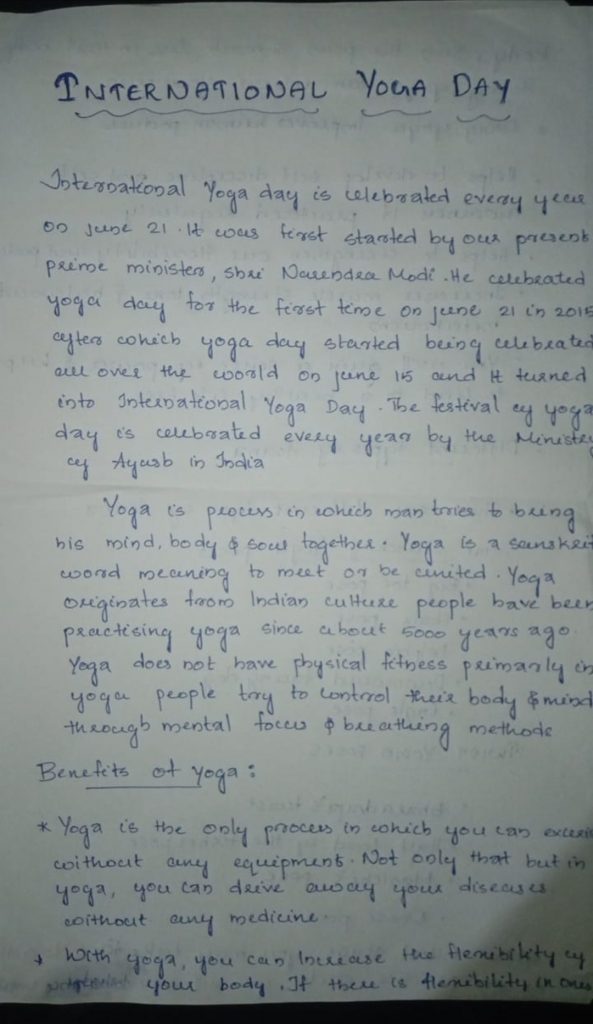 INTERNATIONAL YOGA DAY
International Yoga day is celebrated every year
on June 21. It was first started by our present
prime minister, Shri Narendra Modi. He celebrated
yoga day for the first time on june 21 in 2015
after which yoga day started being celebrated
all over the world on june 15 and It turned
into International Yoga Day. The festival of yoga
day is celebrated every year by the Ministry
of Ayush in India
Yoga is process in which man tries to bring
his mind, body & soul together. Yoga is a sanskrit
word meaning to meet or be united. Yoga
originates from Indian culture people have been
practising yoga since about 5000 years ago.
Yoga does not have physical fitness primarily in
yoga people try to control their body & mind
through mental focus & breathing methods
Benefits of Yoga :
* Yoga is the only process in which you can
without any equipment. Not only that but in
yoga, you can drive away your diseases
without any medicine.
* With yoga, you can Increase the flexibility of
your body. If there is flexibility in ones